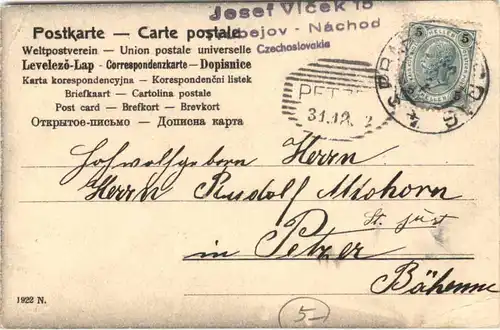 Postkarte — Carte postale
Josef Vlček 15
bejov - Náchod
Czechoslovakia
Weltpostverein — Union postale universelle
Levelező-Lap - Correspondenzkarte - Dopisnice
Karta korespondencyjna — Korespondenční listek
Briefkaart — Cartolina postale
Post card — Brefkort — Brevkort
Открытое-письмо — Дописна карта
5 5
HELLER
PETZ
31.12. 2
Hochwolfgeboren Herrn
Herrn Rudolf Miohorn
St. just
in Petzer
Bähenne
1922 N.
5-